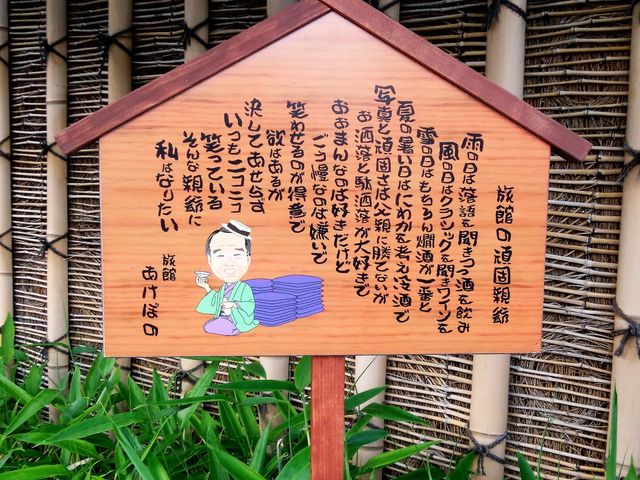 旅館の頑固親爺
雨の日は落語を聞きつつ酒を飲み
風の日はクラシックを聞きワインを
雪の日はもちろん燗酒が一番と
夏の暑い日はにわかを考え冷酒で
写真と頑固さは父親に勝てないが
お洒落と駄洒落が大好きで
おまんなのは好きだけど
ごう慢なのは嫌いで
笑わせるのが得意で
欲はあるが
決してあせらず
いつもニコニコ
笑っている
そんな親爺に
私はなりたい
旅館
あけぼの